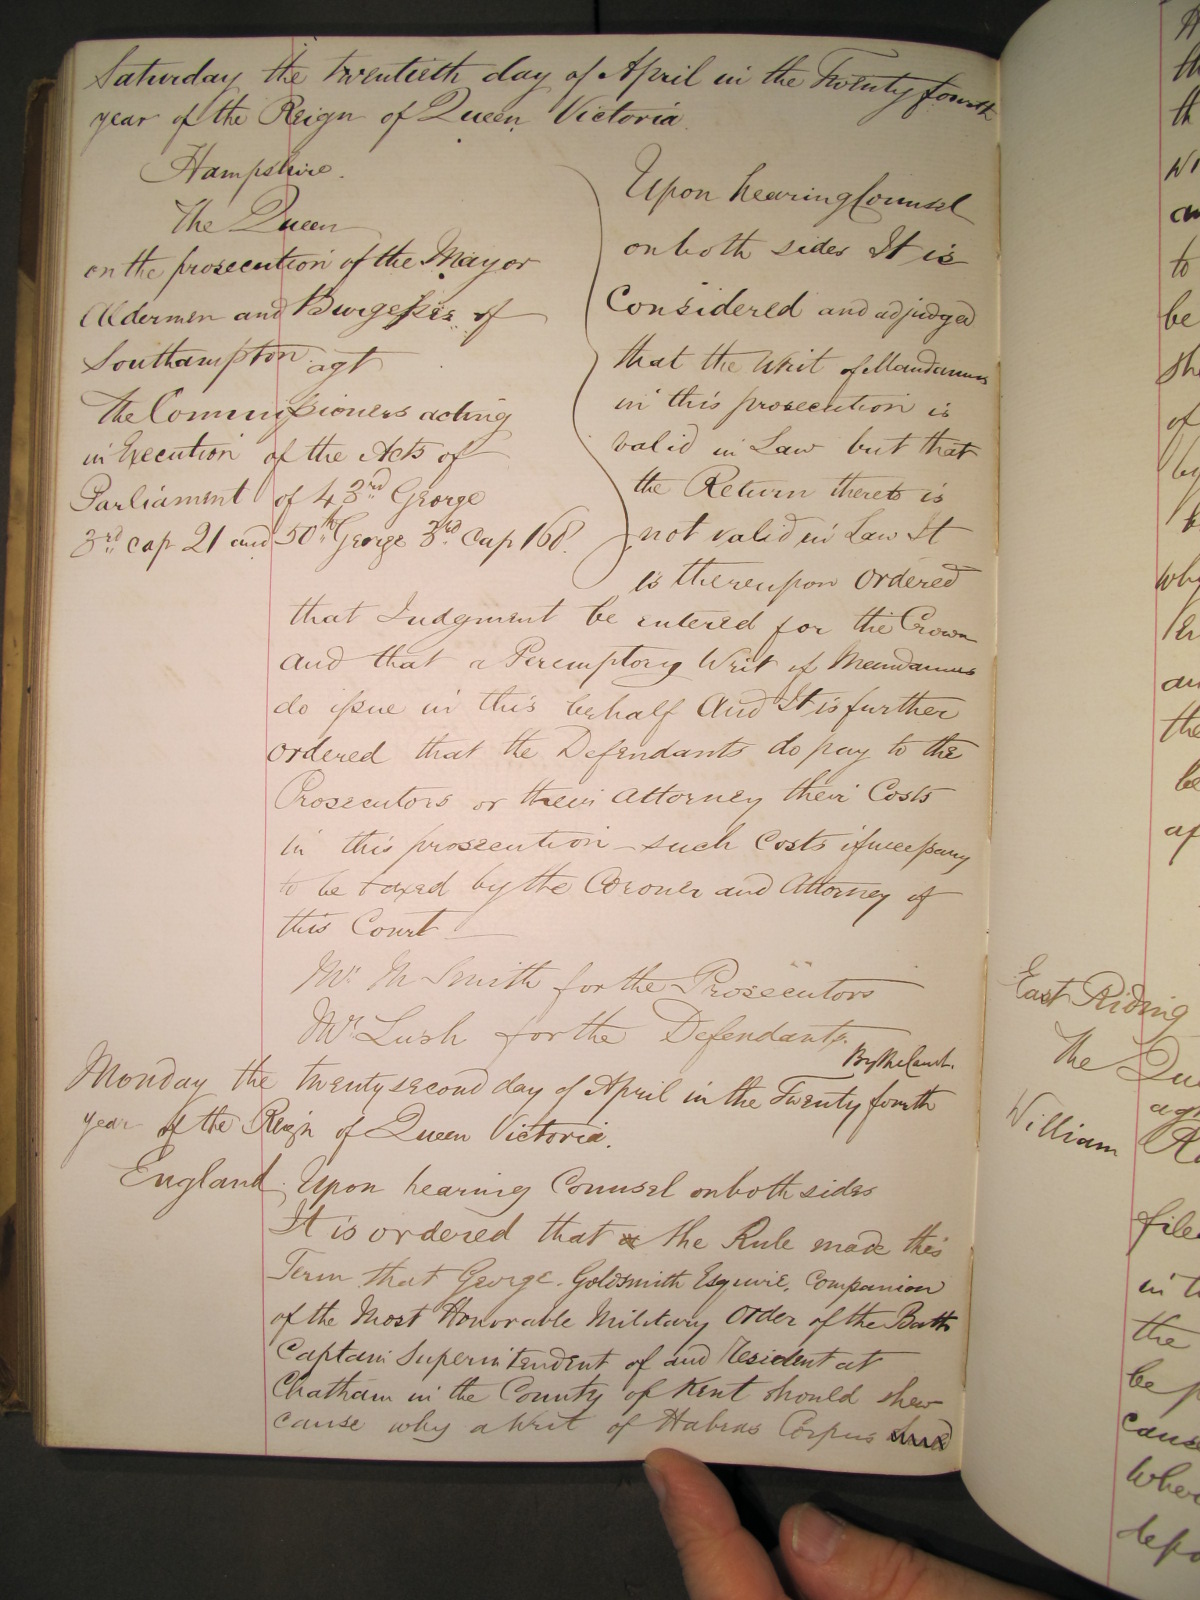 Saturday the twentieth day of April in the Twenty fourth
year of the Reign of Queen Victoria
Hampshire.
The Queen
on the prosecution of the Mayor
Aldermen and Burgesses of
Southampton agt
The Commissioners acting
in Execution of the Acts of
Parliament of 43rd George
3rd cap 21 and 50th George 3rd Cap 168.
Upon hearing Counsel
on both sides It is
Considered and adjudged
that the Writ of Mandamus
in this prosecution is
valid in Law but that
the Return thereto is
not valid in Law It
is thereupon ordered
that Judgment be entered for the Crown
and that a Peremptory Writ of Mandamus
do issue in this behalf And It is further
ordered that the Defendants do pay to the
Prosecutors or their Attorney their Costs
in this prosecution – such Costs if necessary
to be taxed by the Coroner and Attorney of
this Court —
Mr. M Smith for the Prosecutors
Mr. Lush for the Defendants.
By the Court.
Monday the twenty second day of April in the Twenty fourth
year of the Reign of Queen Victoria.
England. Upon hearing Counsel on both sides
It is ordered that the Rule made this
Term that George Goldsmith Esquire, Companion
of the Most Honorable Military Order of the Bath
Captain Superintendent of and Resident at
Chatham in the County of Kent should shew
cause why a Writ of Habeas Corpus
East Riding
The Qu
William
file
in t
the
be p
cause
where
depo